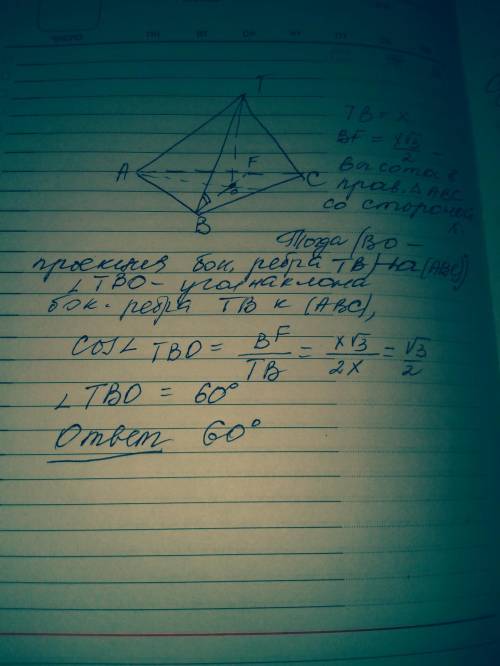 T
A
B
C
F
O
TB = x
BF = x√3/2 –
высота в
прав. Δ ABC
со стороной
x.
Тогда (BO –
проекция бок. ребра TB) на (ABC)
∠ TBO – угол наклона
бок. ребра TB к (ABC),
cos∠ TBO = BF/TB = x√3/2x = √3/2
∠ TBO = 60°
Ответ 60°